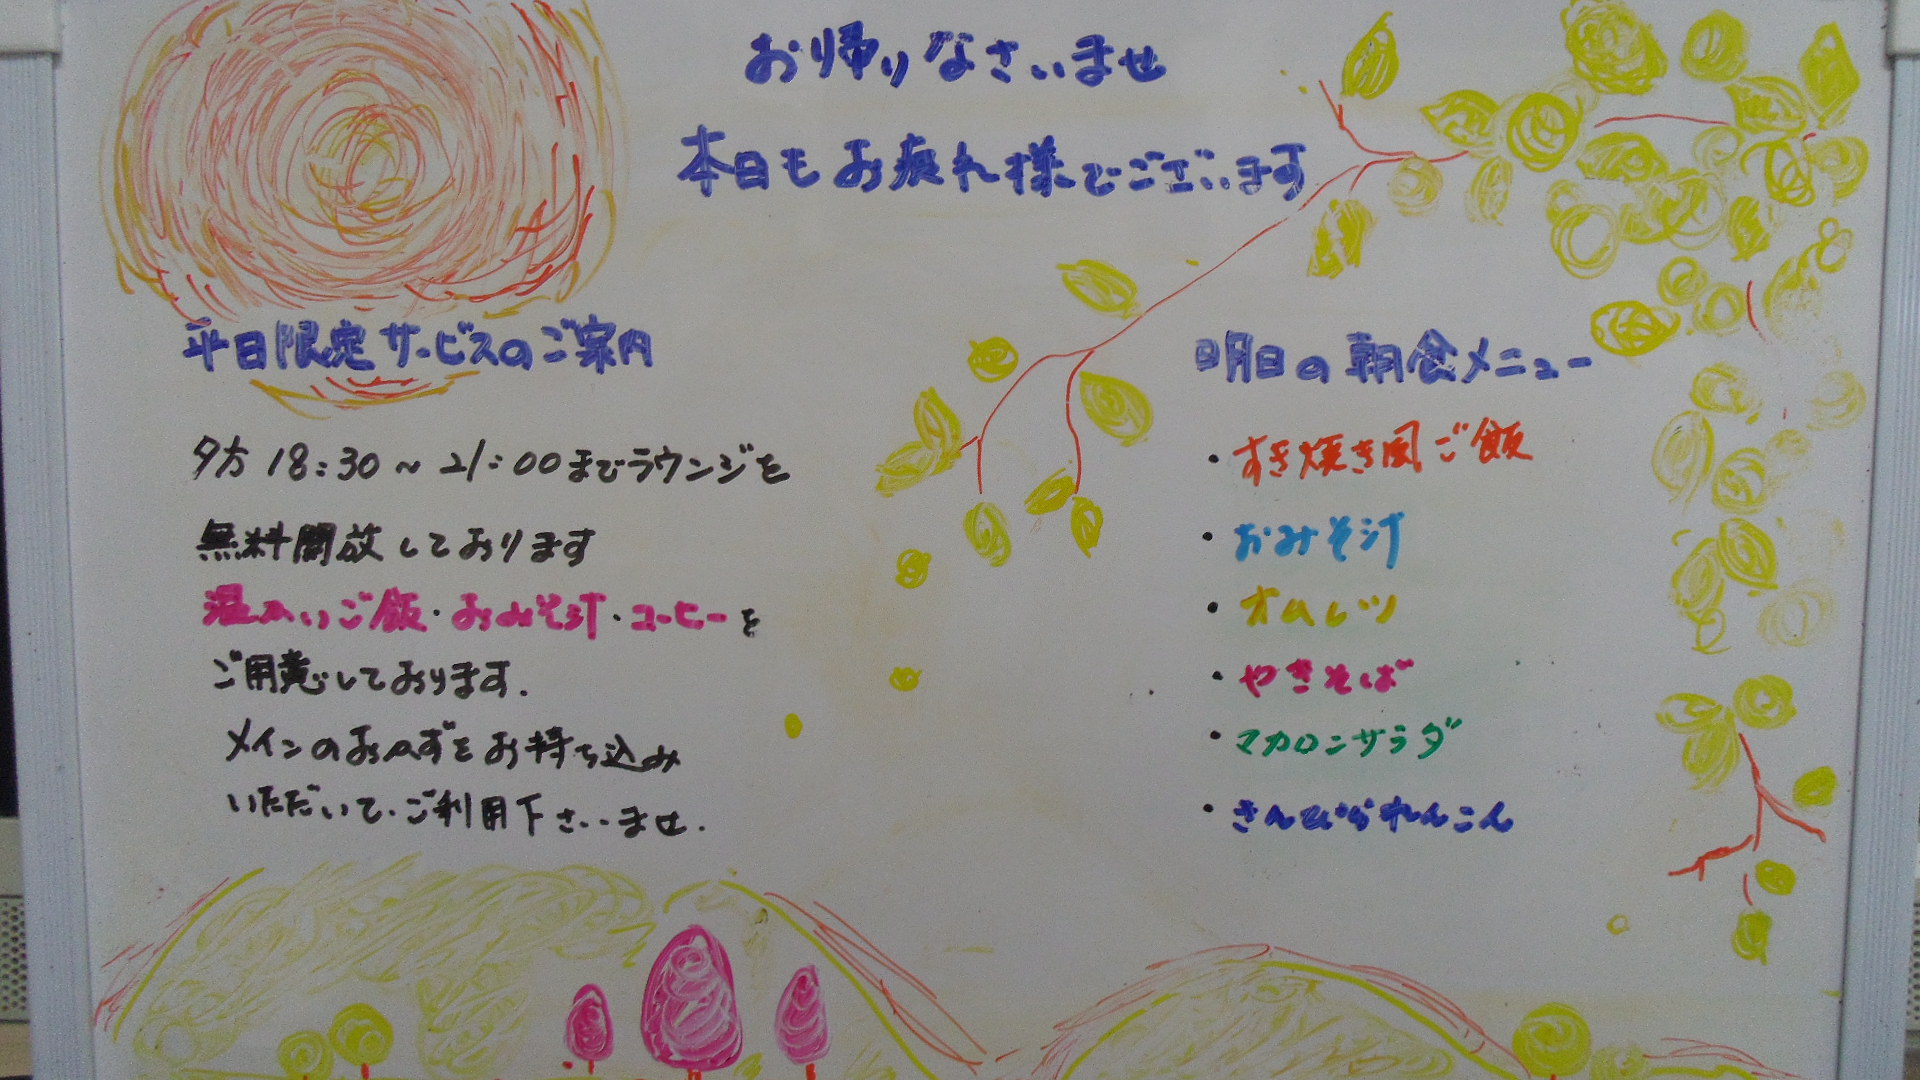 お帰りなさいませ
本日もお疲れ様でございます
平日限定サービスのご案内
夕方 18:30 ~ 21:00までラウンジを
無料開放しております
温かいご飯・おみそ汁・コーヒーを
ご用意しております.
メインのおかずをお持ち込み
いただいて、ご利用下さいませ.
明日の朝食メニュー
・すき焼き風ご飯
・おみそ汁
・オムレツ
・やきそば
・マカロンサラダ
・きんぴられんこん